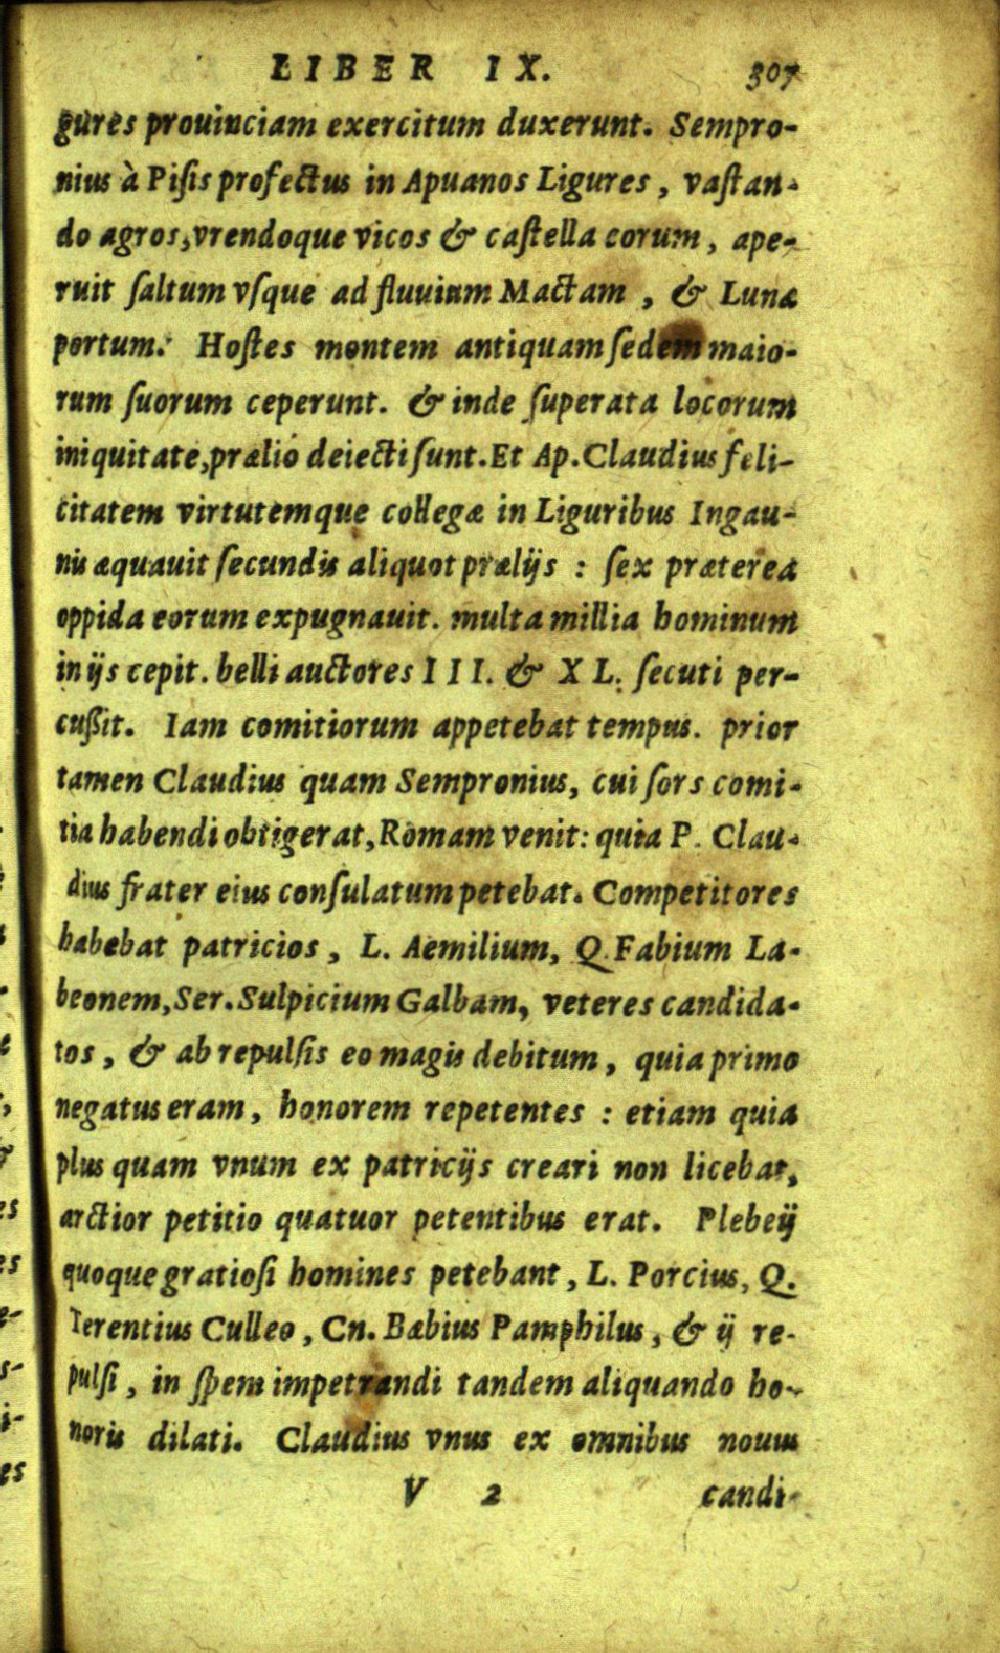 LIBER IX. 307
gures prouinciam exercitum duxerunt. Sempro-
nius à Piſis profectus in Apuanos Ligures, vaſtan-
do agros, vrendoque vicos & caſtella eorum, ape-
ruit ſaltum vſque ad fluuium Mactam, & Lunæ
portum. Hoſtes montem antiquam ſedem maio-
rum ſuorum ceperunt. & inde ſuperata locorum
iniquitate, prælio deiecti ſunt. Et Ap. Claudius feli-
citatem virtutemque collegæ in Liguribus Ingau-
nis æquauit ſecundis aliquot prælijs : ſex præterea
oppida eorum expugnauit. multa millia hominum
in ijs cepit. belli auctores III. & XL. ſecuti per-
cuſsit. Iam comitiorum appetebat tempus. prior
tamen Claudius quam Sempronius, cui ſors comi-
tia habendi obtigerat, Romam venit: quia P. Clau-
dius frater eius conſulatum petebat. Competitores
habebat patricios, L. Aemilium, Q. Fabium La-
beonem, Ser. Sulpicium Galbam, veteres candida-
tos, & ab repulſis eo magis debitum, quia primo
negatus eram, honorem repetentes : etiam quia
plus quam vnum ex patricijs creari non licebat,
arctior petitio quatuor petentibus erat. Plebeij
quoque gratioſi homines petebant, L. Porcius, Q.
Terentius Culleo, Cn. Bæbius Pamphilus, & ij re-
pulſi, in ſpem impetrandi tandem aliquando ho-
noris dilati. Claudius vnus ex omnibus nouus
V 2 candi-